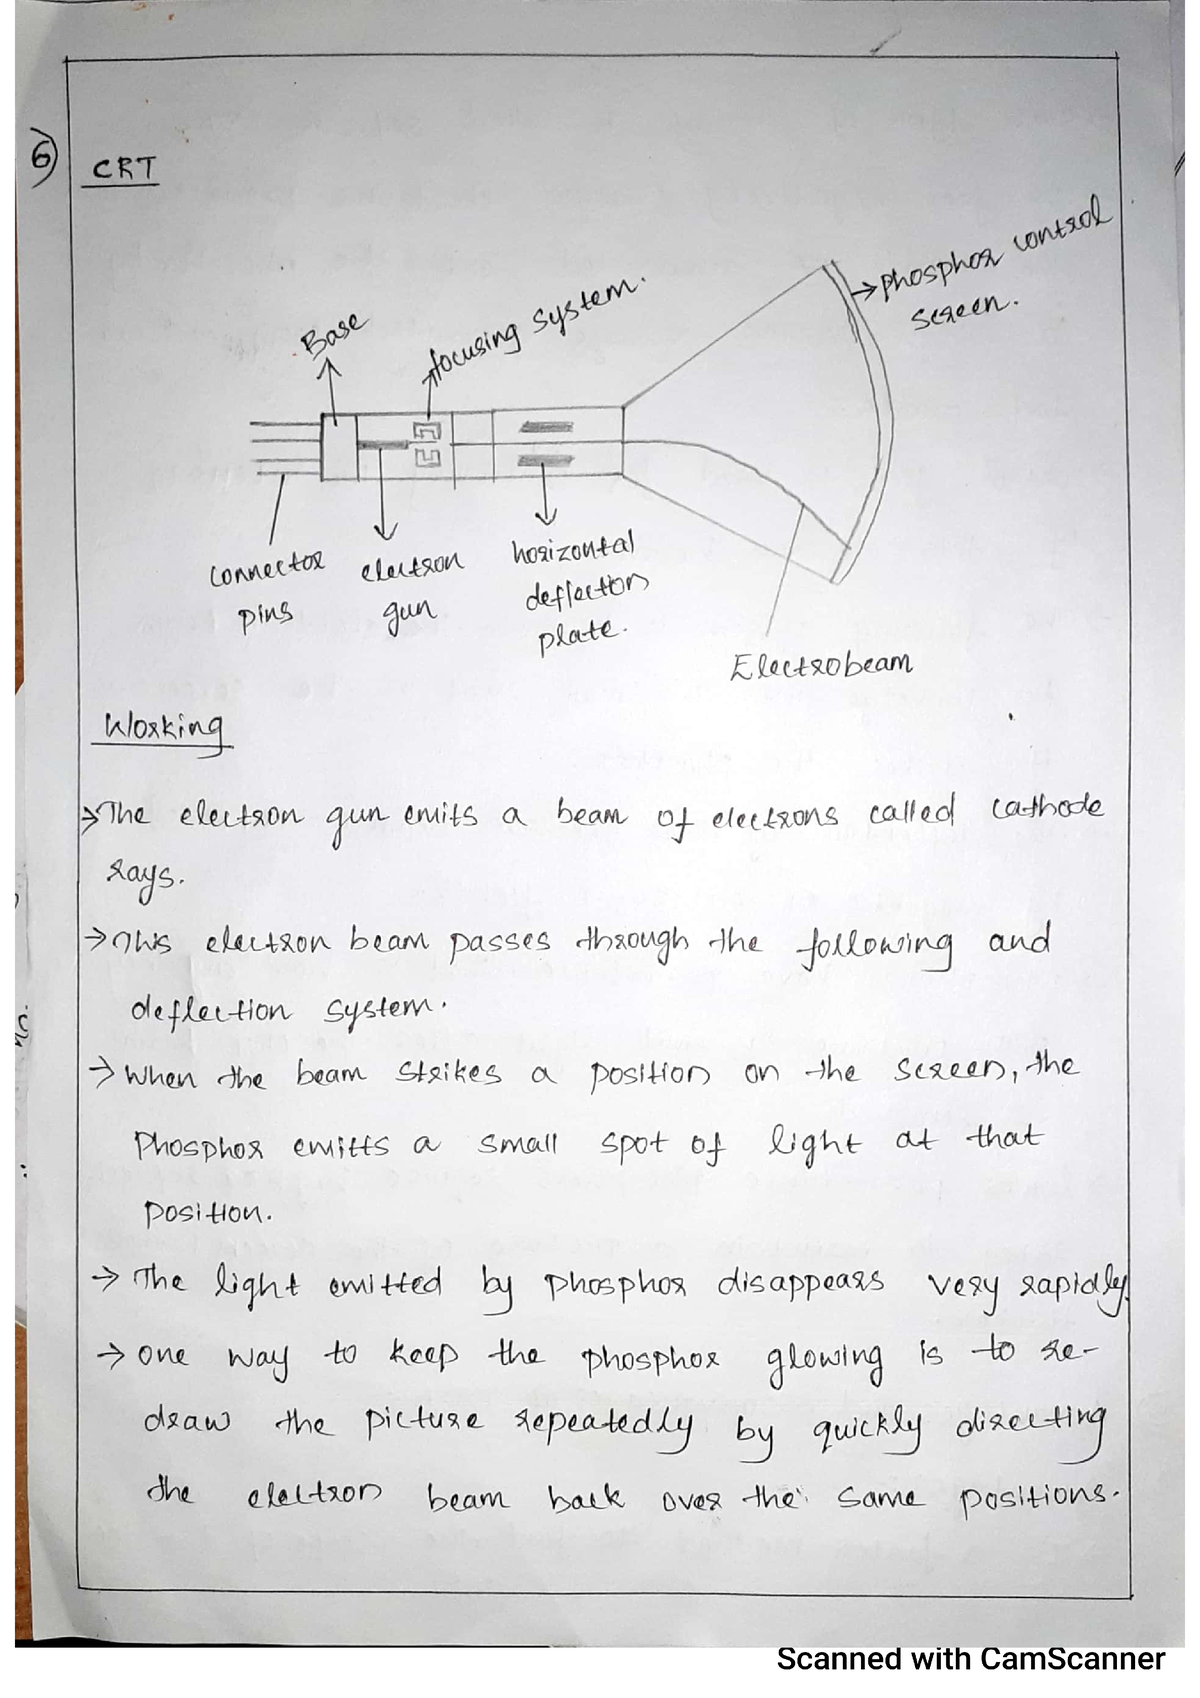 6)
CRT
Phosphor control
screen.
Base
focusing system.
connector
pins
electron
gun
horizontal
deflection
plate.
Electrobeam
Working
→ The electron gun emits a beam of electrons called cathode
rays.
→ This electron beam passes through the following and
deflection system.
→ When the beam strikes a position on the screen, the
Phosphor emitts a small spot of light at that
position.
→ The light emitted by phosphor disappears very rapidly.
→ one way to keep the phosphor glowing is to re-
draw the picture repeatedly by quickly directing
the electron beam back over the same positions.
Scanned with CamScanner